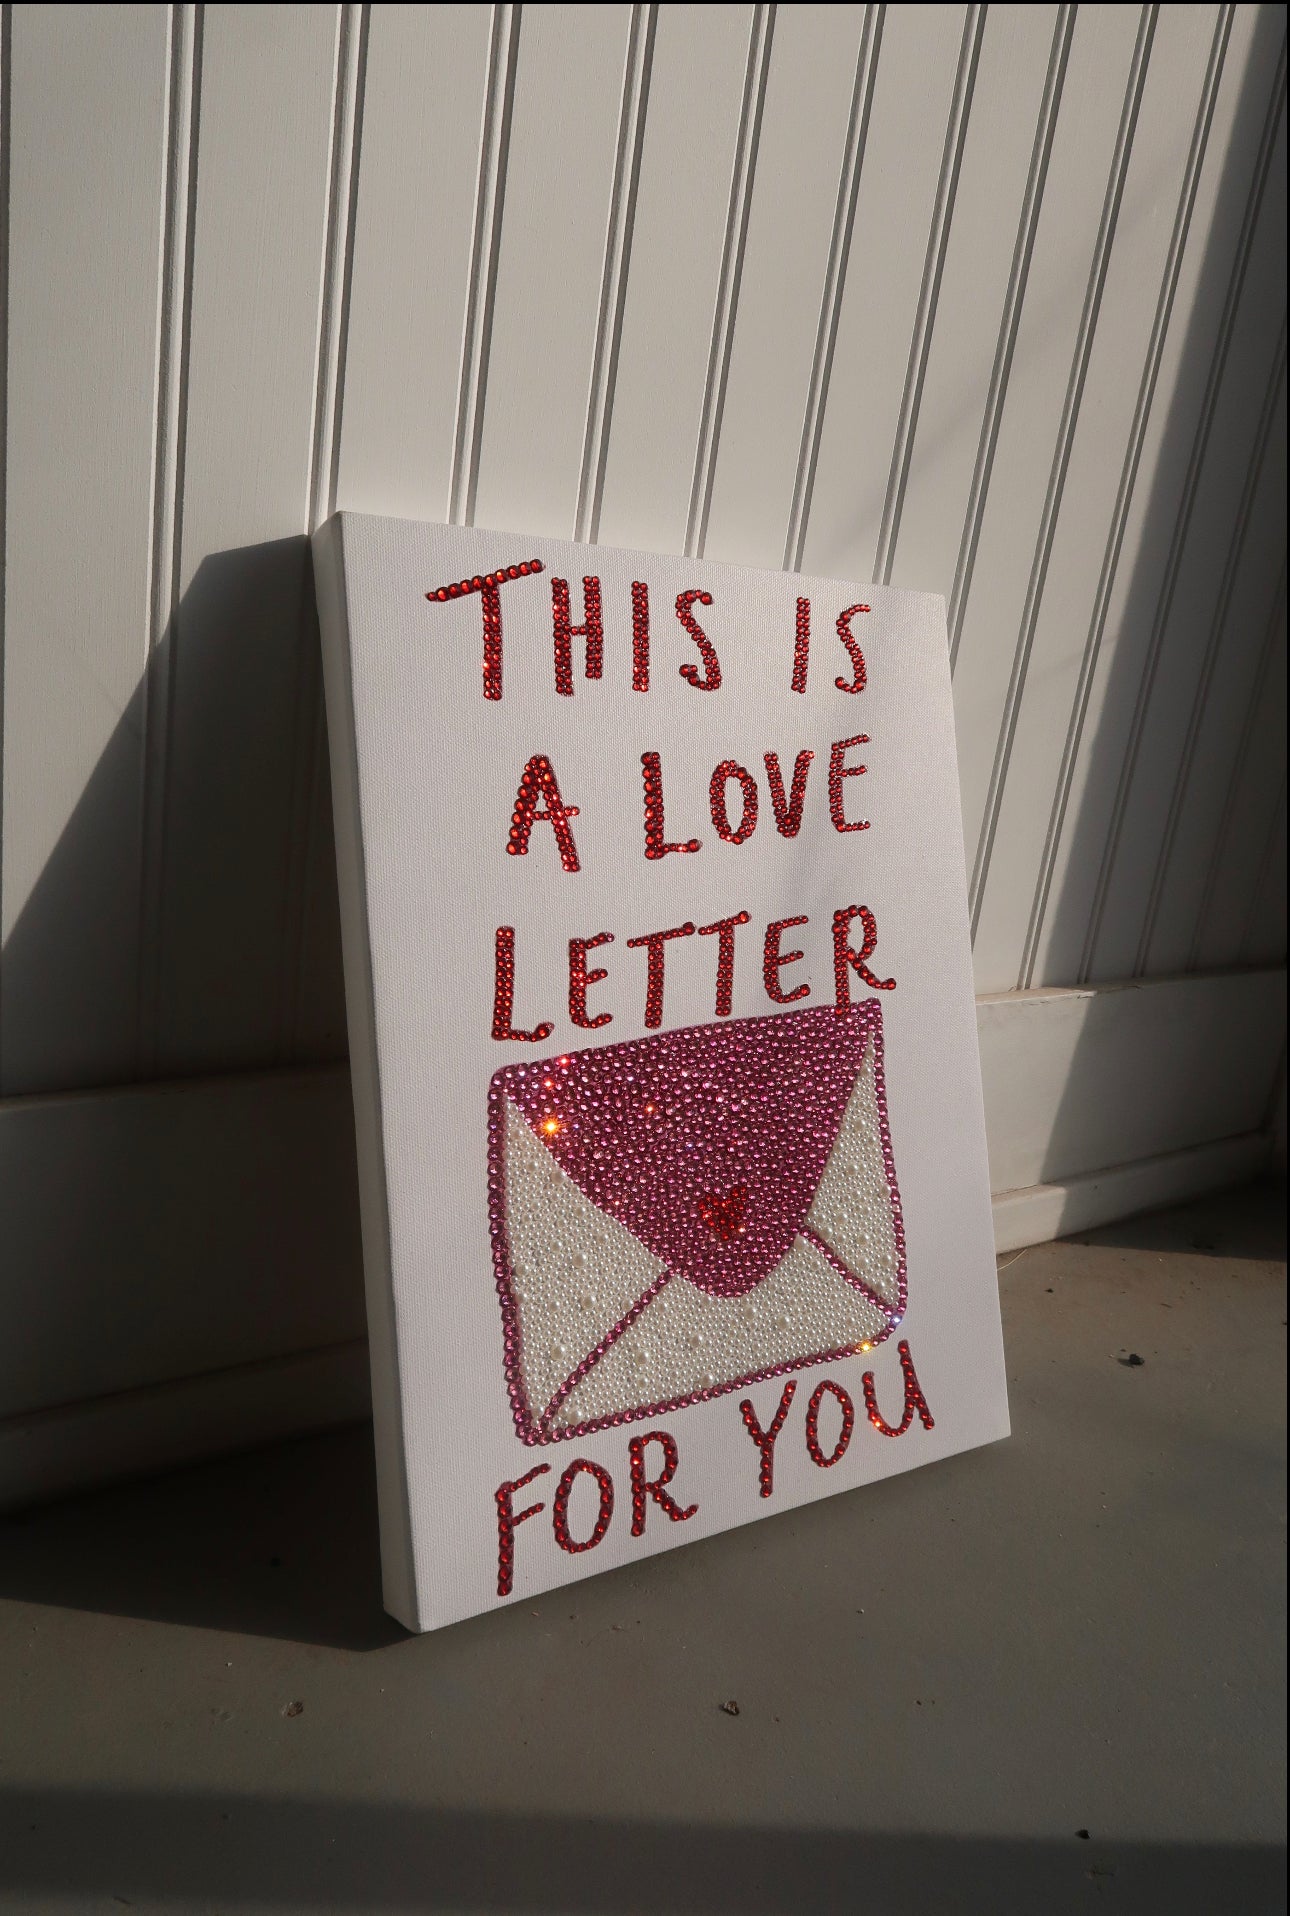 THIS IS
A LOVE
LETTER
FOR YOU